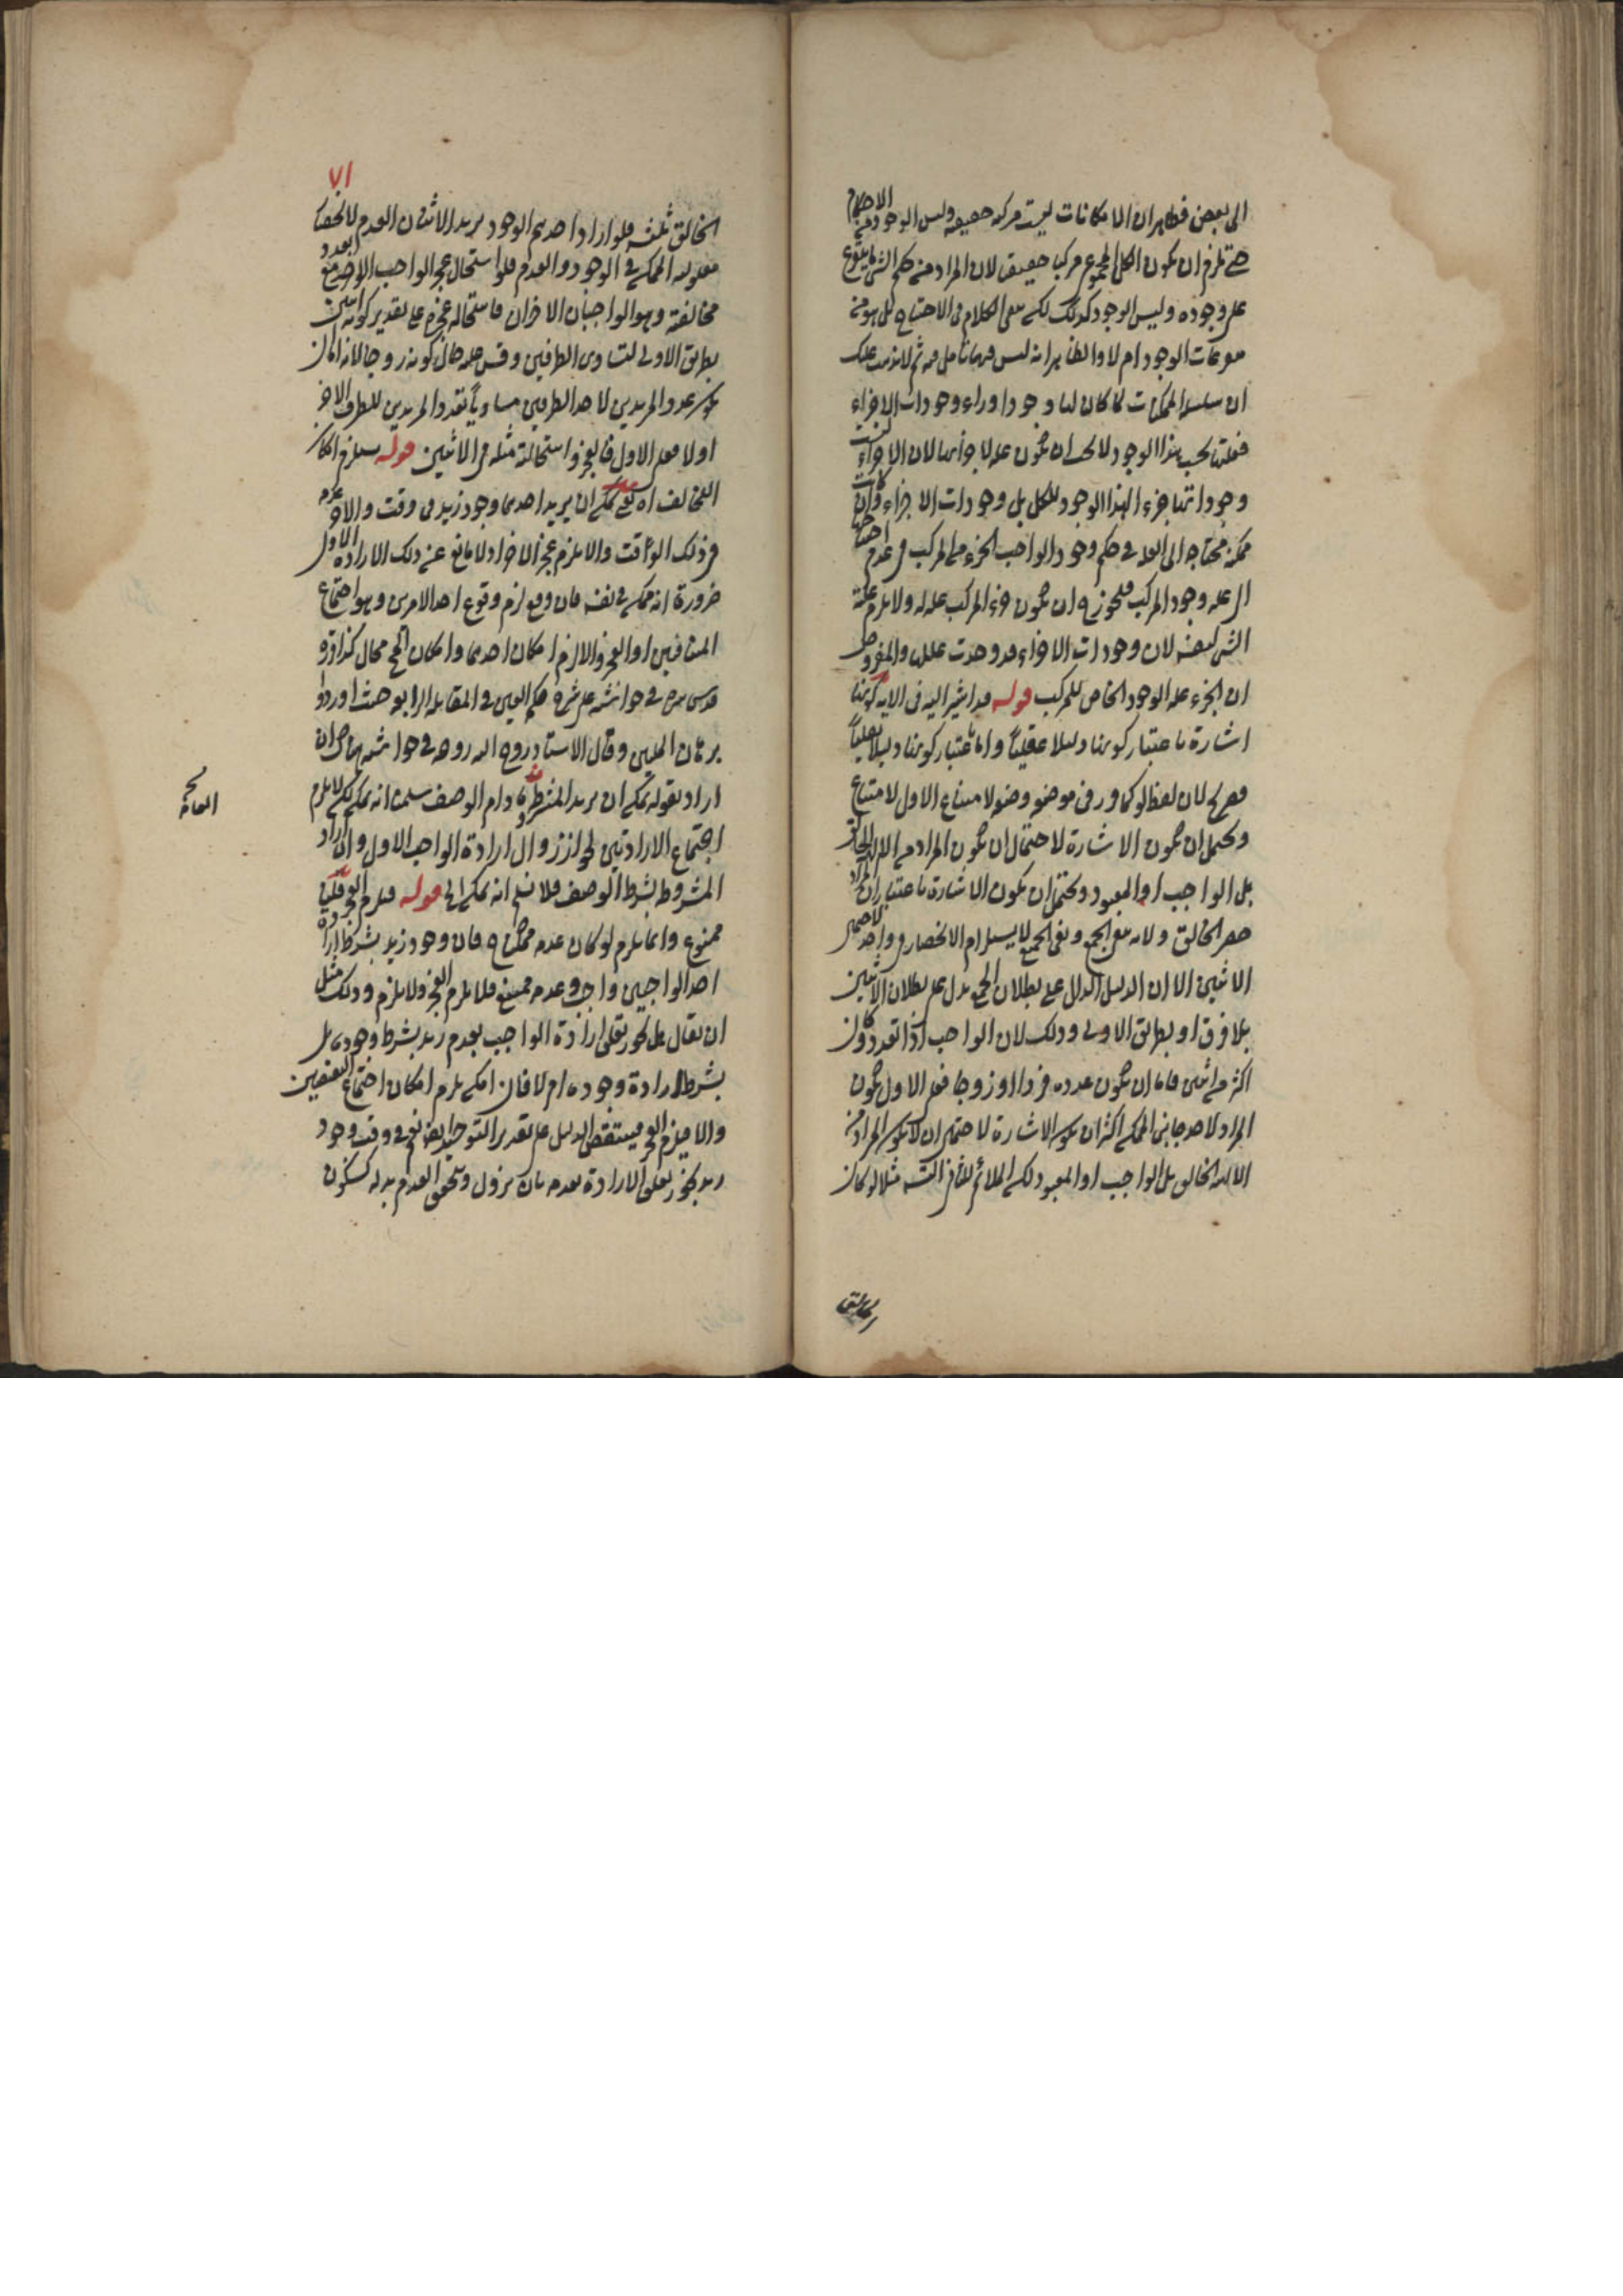 الى بعض فظاهر ان الامكانات ليست مركبة حقيقة وليس الوجود من الاحكام
حتى يلزم ان يكون الكل المجموع مركب حقيقى لان المراد منه حكم الشئ ما يتفرع
على وجوده وليس الوجود كذلك لكن بقى الكلام فى الاحتياج هل هو من
فرعات الوجود ام لا والظاهر انه ليس منها تأمل فيه ثم لا يذهب عليك
ان سلسلة الممكنات لما كان لها وجود وراء وجودات الاجزاء
فعلتها بحسب هذا الوجود لا يجب ان يكون علة لاجزائها لان الاجزاء ليست
وجوداتها جزء لهذا الوجود للكل بل وجودات الاجزاء وان كانت
ممكنة محتاجة الى العلة فى حكم وجود الواجب الجزء من المركب فى عدم احتياجها
الى علة وجود المركب فيجوز ح ان يكون جزء المركب علة له ولا يلزم علية
الشئ لنفسه لان وجودات الاجزاء قد وجدت بعللها والمفروض
ان الجزء علة الوجود الخاص للمركب قوله قد اشير اليه فى الاية كونها
اشارة باعتبار كونها دليلا عقليا واما باعتبار كونها دليلا نقليا
فصريح لان لفظ لو كما ورد فى موضعه وضع لامتناع الاول لامتناع
ويحتمل ان يكون الاشارة لاحتمال ان يكون المراد من الاله الخالق
بل الواجب او المعبود ويحتمل ان يكون الاشارة باعتبار ان المراد
حصر الخالق ولانه نفى الجمع ونفى الجمع لا يستلزم الانحصار فى واحد لاحتمال
الاثنين الا ان الدليل الدال على بطلان الجمع يدل على بطلان الاثنين
بلا فرق او بطريق الاولى وذلك لان الواجب اذا تعدد وكان
اكثر من اثنين فاما ان يكون عدده فردا او زوجا فعلى الاول يكون
المراد لاحد جانبى الممكن اكثر ان يكون الاشارة لاحتمال ان لا يكون المراد من
الاله الخالق بل الواجب او المعبود لكن الملائم مثلا لو كان
٧١
الخالق ثلثة فلو اراد احدهم الوجود يريد الاثنان العدم لا
مقدوره الممكن فى الوجود والعدم فلو استحال عجز الواحد مع تعدد
مخالفته وهو الواجبان الاخران فاستحالة عجزه على تقدير كونه اثنين
بطريق الاولى لتساوى الطرفين وقس عليه حال كونه زوجا لانه اما ان
يكون عدد المريدين لاحد الطرفين مساويا لعدد المريدين للطرف الاخر
اولا فعلى الاول فالعجز واستحالته مثله فى الاثنين قوله يستلزم امكان
التخالف اه يعنى يمكن ان يريد احدهما وجود زيد فى وقت والاخر عدمه
فى ذلك الوقت والا يلزم عجز الاخر اذ لا مانع عن ذلك الا ارادة الاول
ضرورة انه ممكن فى نفسه فان وقع لزم وقوع احد الامرين وهو اجتماع
المتنافيين او العجز والا لزم امكان احدهما وامكان المح محال كذا قرره
قدس سره فى حواشيه على شرح حكمة العين فى المقابلة الرابعة حيث اورد
برهان المليين وقال الاستاذ روح الله روحه فى حواشيه هناك ان
اراد بقوله يمكن ان يريد المشروط ما دام الوصف سلمنا انه يمكن لكن لا يلزم
اجتماع الارادتين لجواز زوال ارادة الواجب الاول وان اراد
المشروط بشرط الوصف فلا نسلم انه يمكن الخ قوله فيلزم العجز قلنا
ممنوع وانما يلزم لو كان عدمه ممكنا ح فان وجود زيد بشرط ارادة
احد الواجبين واجب وعدمه ممتنع فلا يلزم العجز ولا يلزم وذلك مثل
ان يقال هل يجوز تعلق ارادة الواجب بعدم زيد بشرط وجوده بل
بشرط ارادة وجوده ام لا فان امكن يلزم امكان اجتماع النقيضين
والا فيلزم العجز فينتقض الدليل على تقدير التوحيد ايضا نعم فى وقت وجود
زيد يجوز تعلق الارادة بعدمه بان يزول ويتحقق العدم بدله كسكون